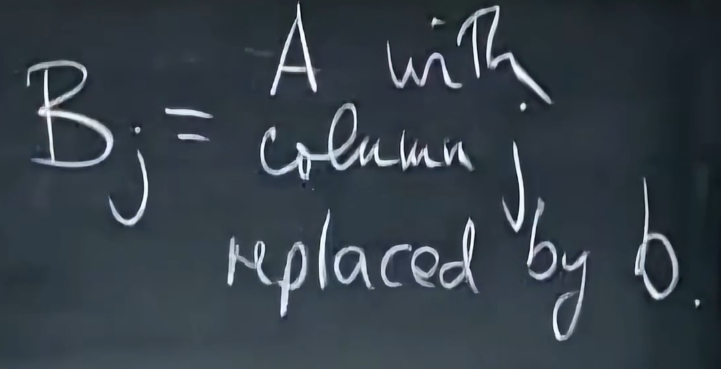 B_j = A with
column j
replaced by b.